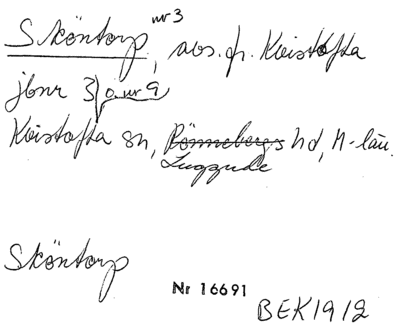 Sköntorp nr 3, avs. fr. Kvistofta
jbnr 3 o. nr 9
Kvistofta sn, Rönnebergs hd, M-län.
Luggude
Sköntorp
Nr 16691
BEK 1912